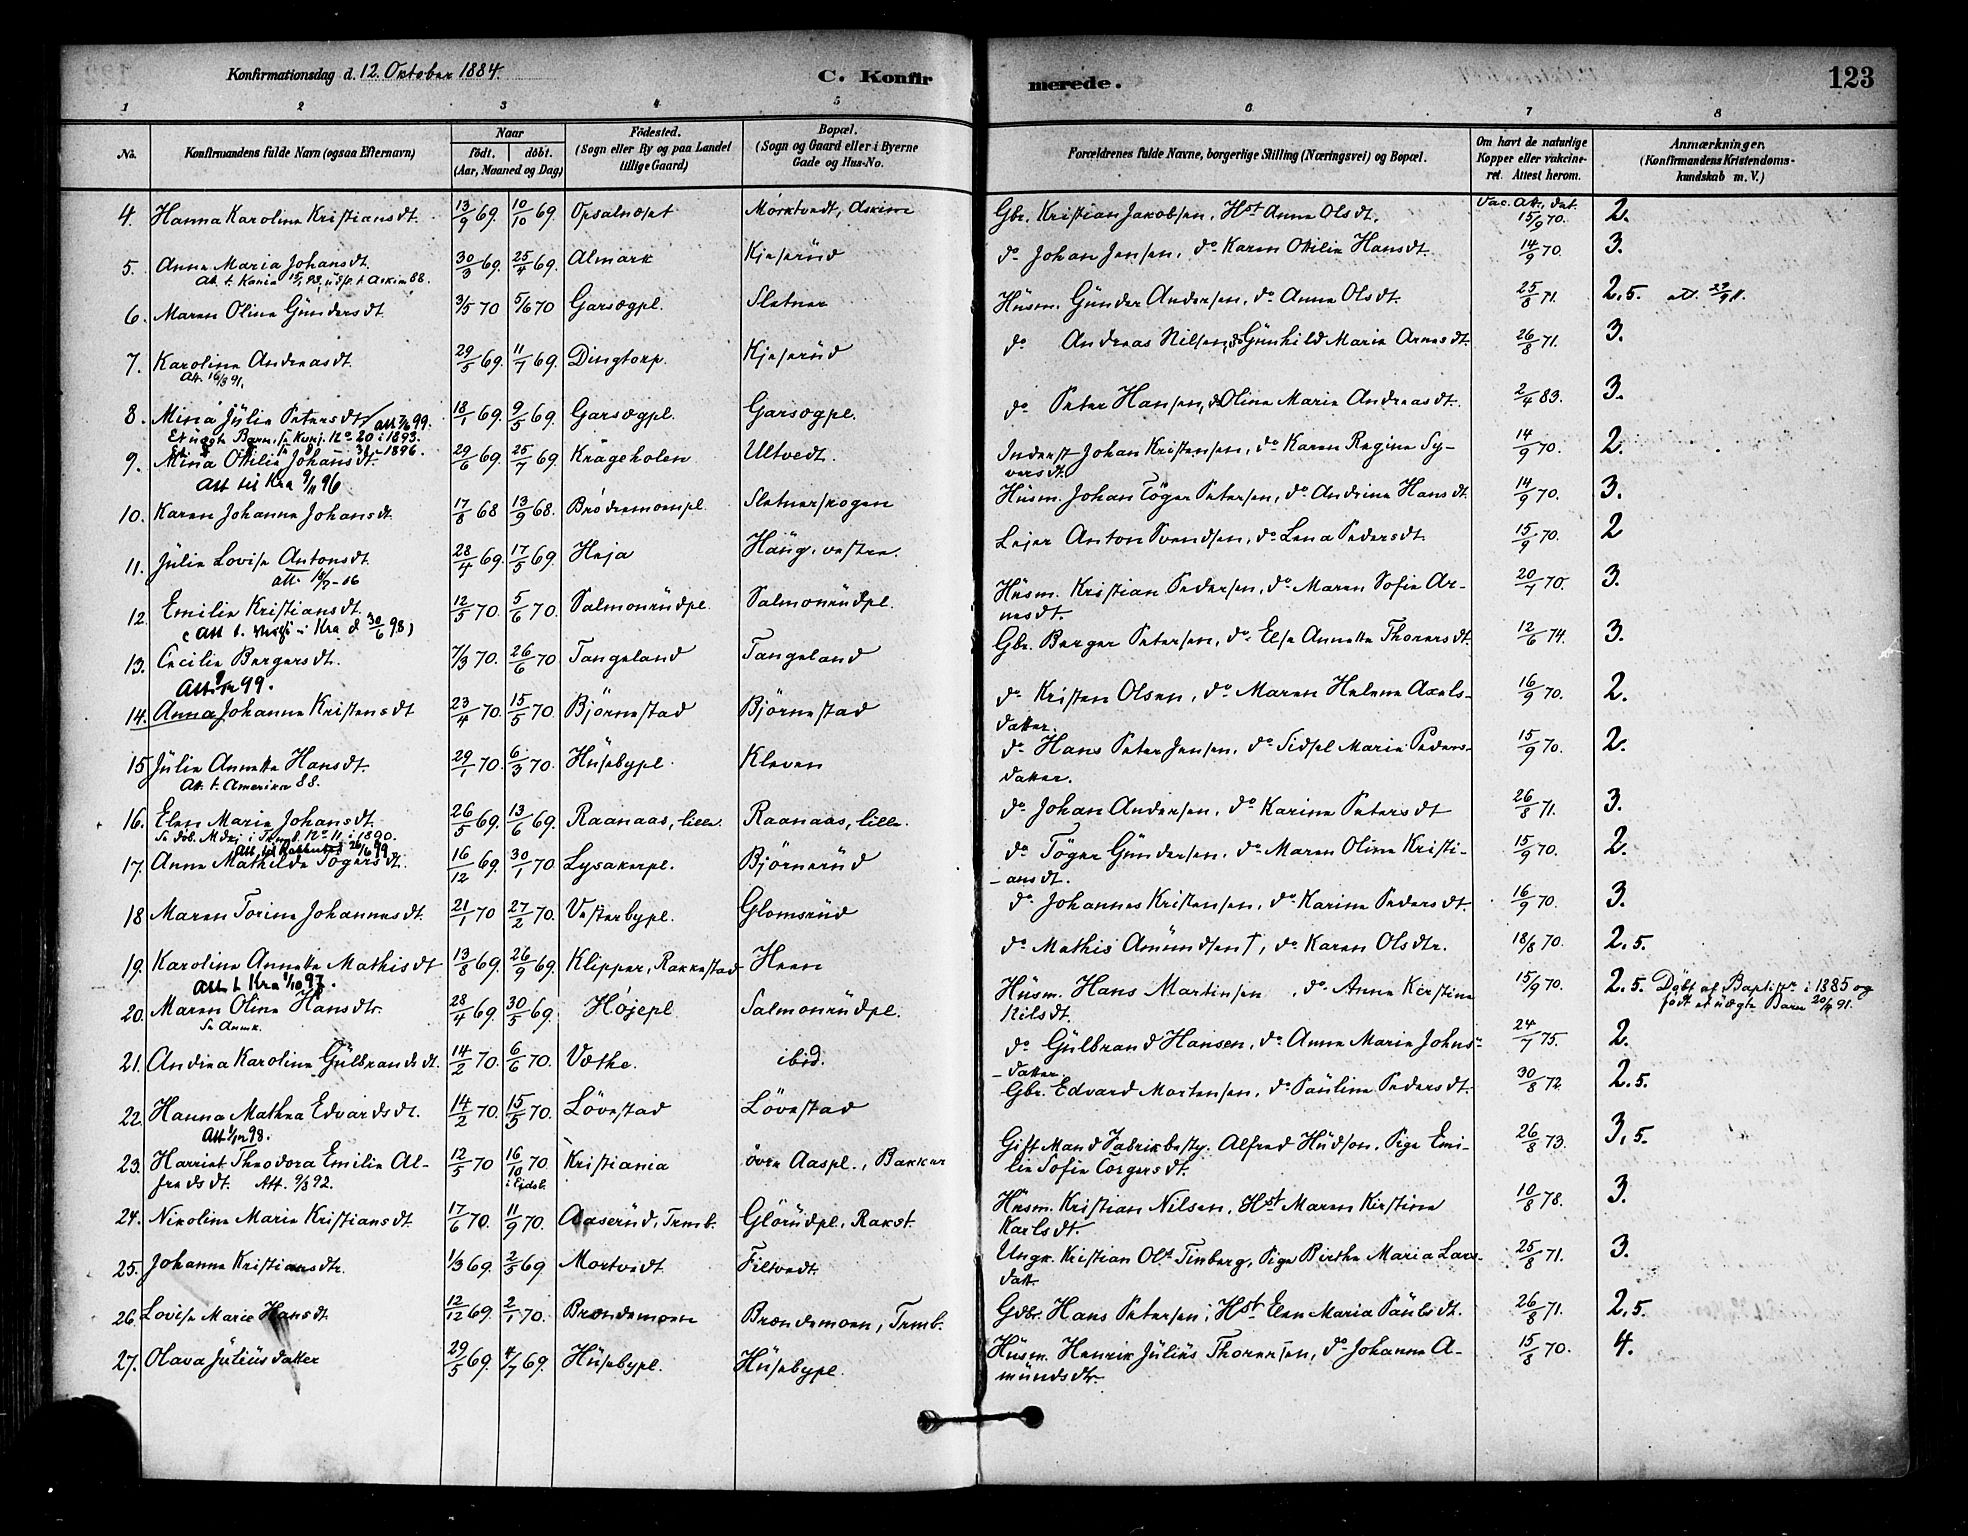 Konfirmationsdag d. 12. Oktober 1884.
C. Konfirmerede.
123
1 2 3 4 5 6 7 8
No.
Konfirmandens fulde Navn (ogsaa Efternavn)
Naar
født. døbt.
(Aar, Maaned og Dag)
Fødested.
(Sogn eller By og paa Landet
tillige Gaard)
Bopæl.
(Sogn og Gaard eller i Byerne
Gade og Hus-No.
Forældrenes fulde Navne, borgerlige Stilling (Næringsvei) og Bopæl.
Om havt de naturlige
Kopper eller vakcine-
ret. Attest herom.
Anmærkninger.
(Konfirmandens Kristendoms-
kundskab m. V.)
4. Hanna Karoline Kristiansdt. 13/9 69. 10/10 69. Opsalnæset Mörktvedt, Askim Gbr. Kristian Jakobsen, Hst Anne Olsdt. Vac. Att. dat. 15/9 70. 2.
5. Anne Maria Johansdt. 30/3 69. 25/4 69. Almark Kjeserüd do Johan Jensen, do Karen Otilie Hansdt. 14/9 70. 3.
6. Maren Oline Gündersdt. 3/5 70 5/6 70 Garsegpl. Sletner Hüsm. Günder Andersen, do Anne Olsdt. 25/8 71. 2,5.
7. Karoline Andreasdt. 29/5 69. 11/7 69. Dingtorp. Kjeserüd do Andreas Nilsen, do Günhild Marie Arnesdt. 26/8 71. 3.
Att. 16/3 91.
8. Mina Jülie Petersdt. 18/1 69. 9/5 69. Garsegpl. Garsegpl. do Peter Hansen, do Oline Marie Andreasdt. 2/4 83. 3.
Et uægte Barn, se Konf. No 20 i 1893.
9. Mina Otilie Johansdt. 29/6 69. 25/7 69. Krageholen Ultvedt. Inderst Johan Kristensen, do Karen Regine Sy-
versdt. 14/9 70. 2.
Att til Kra 9/11 96
10. Karen Johanne Johansdt. 17/8 68 13/9 68. Brödremoenpl. Sletnerskogen Hüsm. Johan Töger Petersen, do Andrine Hansdt. 14/9 70. 3.
11. Jülie Lovise Antonsdt. 28/4 69. 17/5 69. Heja Haüg, vestre. Lejer Anton Svendsen, do Lena Pedersdt. 15/9 70. 2
12. Emilie Kristiansdt. 12/5 70. 5/6 70. Salmonrüdpl. Salmonrüdpl. Hüsm. Kristian Pedersen, do Maren Sofie Ar-
nesdt. 20/7 70. 3.
13. Cecilie Bergersdt. 7/3 70. 26/6 70 Tangeland Tangeland Gbr. Berger Petersen, do Else Annette Thorersdt. 12/6 74. 3.
14. Anna Johanne Kristensdt 23/4 70. 15/5 70. Björnestad Björnestad do Kristen Olsen, do Maren Helene Axels-
datter. 16/9 70. 2.
15. Jülie Annette Hansdt. 29/1 70. 6/3 70. Hüsebypl. Kleven do Hans Peter Jensen, do Sidsel Marie Peders-
datter. 15/9 70. 2.
Att. t. Amerika 88.
16. Elen Marie Johansdt. 26/5 69. 13/6 69. Raanaas, lille. Raanaas, lille. do Johan Andersen, do Karine Petersdt 26/8 71. 3.
17. Anne Mathilde Tögersdt. 16/12 69. 30/1 70 Lysakerpl. Björnerüd do Töger Gündersen, do Maren Oline Kristi-
ansdt. 15/9 70. 2.
18 Maren Torine Johannesdt. 21/1 70 27/2 70. Vesterbypl. Glomsrüd do Johannes Kristensen, do Karine Pedersdt. 16/9 70. 3.
19. Karoline Annette Mathisdt 13/8 69. 26/9 69. Klipper, Rakkestad Heen do Mathis Amündsen†, do Karen Olsdtr. 18/8 70. 2,5.
Att t. Kra 1/10 97.
20. Maren Oline Hansdtr. 28/4 69. 30/5 69. Höjepl. Salmonrüdpl. Hüsm. Hans Martinsen, do Anne Kirstine
Nilsdt. 15/9 70. 2,5. Döbt af Baptister i 1885 og
født et uægte Barn 91.
Se Anmk.
21. Andrea Karoline Gülbrandsdt. 14/2 70. 6/6 70. Vethe. ibid. do Gülbrand Hansen, do Anne Marie Johns-
datter. 24/7 75. 2.
22. Hanna Mathea Edvardsdt. 14/2 70. 15/5 70. Lövestad Lövestad Gbr. Edvard Mortensen, do Paüline Pedersdt. 30/8 72. 2,5.
23. Harriet Theodora Emilie Al-
fredsdt. Att. 9/3 92. 12/5 70 16/10 70. i Eidsb. Kristiania övre Aaspl., Bakker Gift Mand Fabrikbesty. Alfred Hüdson, Pige Emi-
lie Sofie Torgersdt. 26/8 73. 3,5.
24. Nikoline Marie Kristiansdt. 17/6 70. 11/9 70. Aaserüd, Trmb. Glörüdpl. Rakst. Hüsm. Kristian Nilsen, Hst Maren Kirstine
Karlsdt. 10/8 78. 3.
25. Johanne Kristiansdtr. 1/3 69. 2/5 69 Mortvedt Filtvedt. Ungk. Kristian Ols. Tinberg, Pige Birthe Maria Lars-
datt. 25/8 71. 3.
26. Lovise Marie Hansdt. 12/12 69. 2/1 70. Brændemoen Brændemoen, Trmb. Gdbr. Hans Petersen, Hst Elen Maria Paülsdt. 26/8 71. 2,5.
27. Olava Jüliüsdatter 29/5 69. 4/7 69. Hüsebypl. Hüsebypl. Hüsm. Henrik Jüliüs Thorersen, do Johanne A-
mündsdtr. 15/8 70. 4.